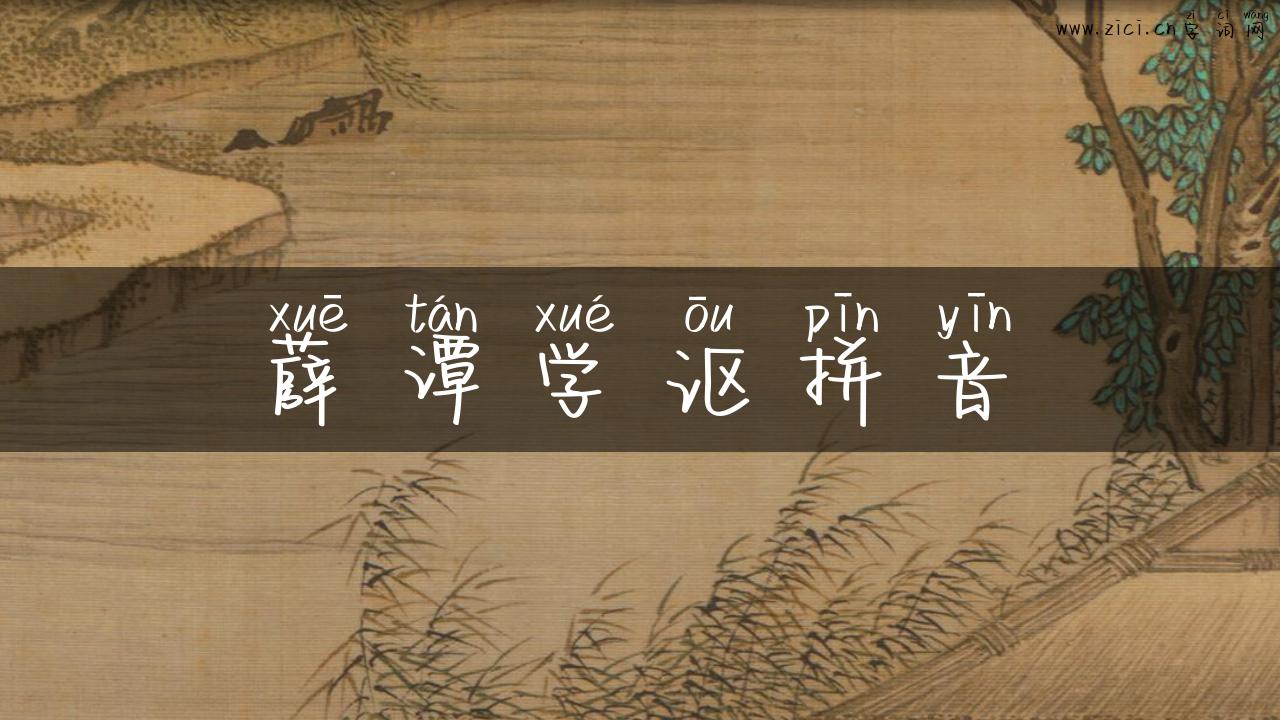 zì cí wǎng
www.zici.cn字词网
xuē tán xué ōu pīn yīn
薛谭学讴拼音